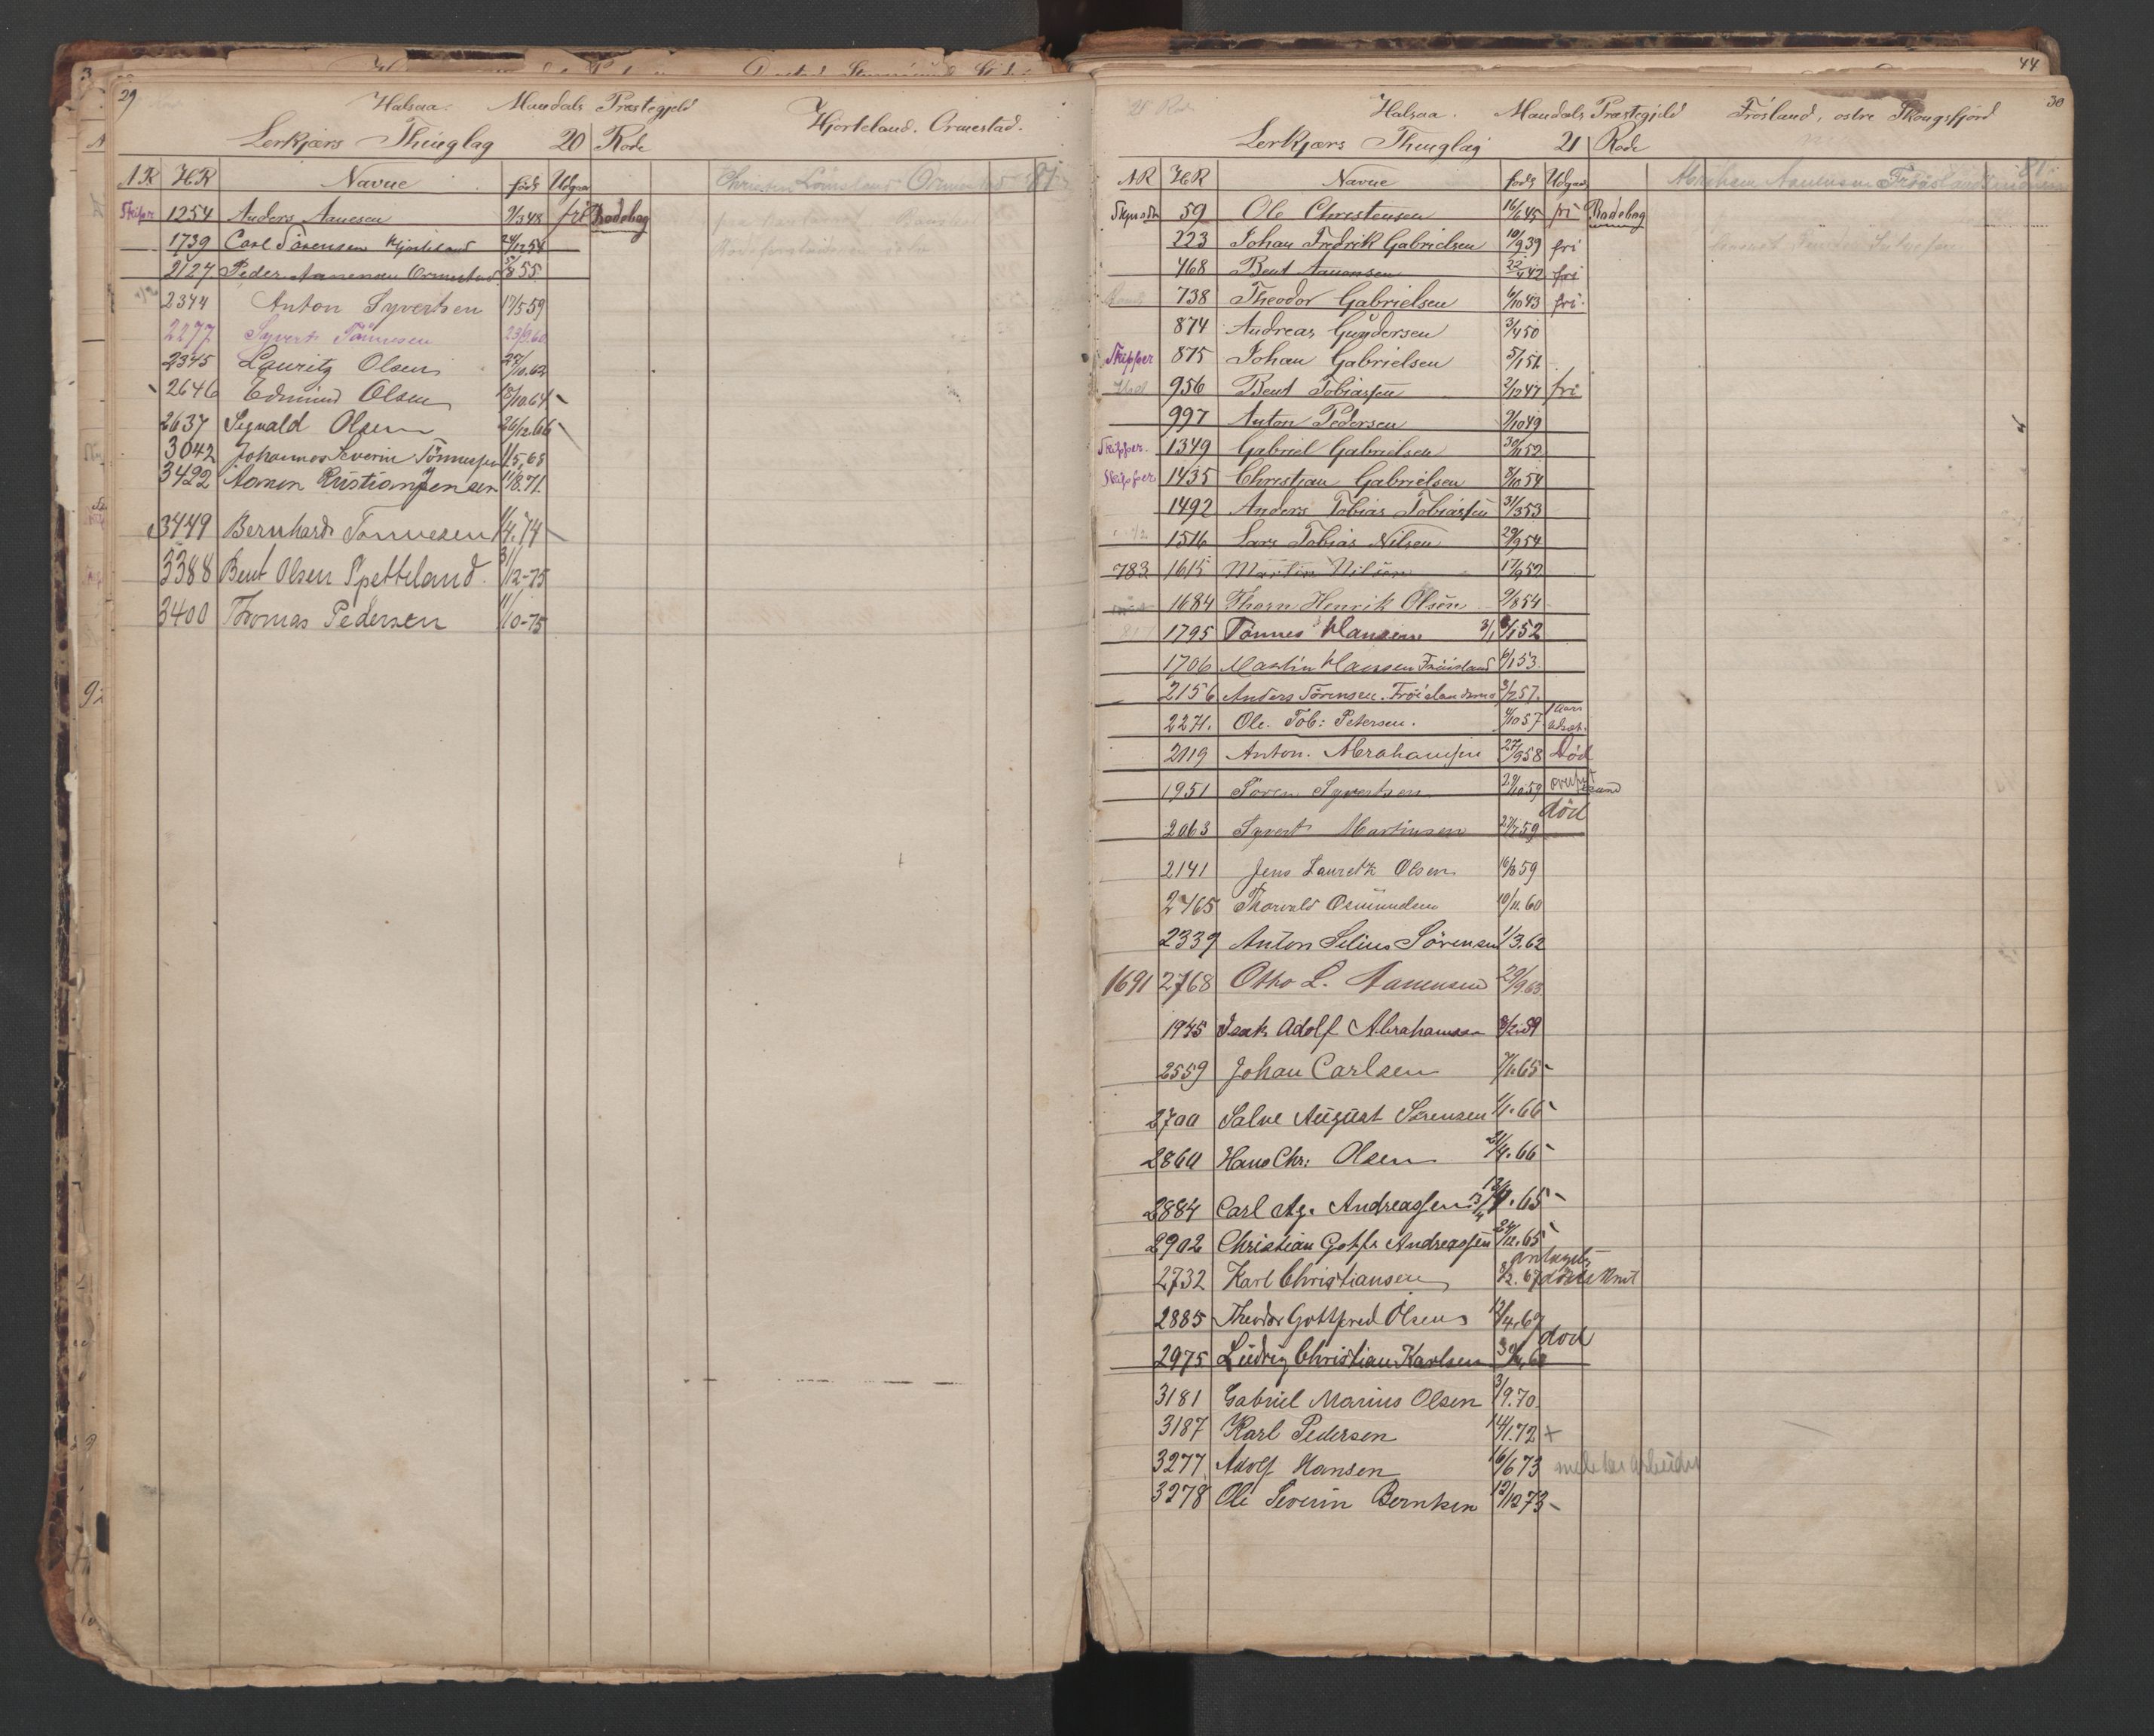 29
Halsaa. Mandals Præstegjeld Hjorteland. Ormestad.
Lerkjærs Thinglag 20 Rode
AR HR Navne født Udgaa
Skipper 1254 Anders Aanesen 9/3 48 fri Rodebog
1739 Carl Sørensen Hjorteland 24/12 54
2127 Peder Aanensen Ormestad 5/8 55
2344 Anton Syvertsen 17/5 59
2277 Syvert Tönnesen 23/9.60
2345 Lauritz Olsen 27/10.62
2646 Edmund Olsen 18/10.64
2637 Sigvald Olsen 26/12.66
3042 Johannes Severin Tönnessen 1/5,68
3422 Aanen Kristian Jensen 11/8.71.
3449 Bernhard Tønnesen 1/4.74
3388 Bent Olsen Spetteland. 31/12-75
3400 Thomas Pedersen 11/10-75
44
30
21 Rode
Halsaa. Mandals Præstegjeld Frösland, ostre Skougsfjord
Lerkjærs Thinglag 21 Rode
AR HR Navne født Udgaa
59 Ole Christensen 16/6 45 fri Rodebog
223 Johan Fredrik Gabrielsen 10/9 39 fri
468 Bent Aanensen 22/4 42 fri
738 Theodor Gabrielsen 6/10 43 fri.
874 Andreas Gundersen 3/4 50
Skipper 875 Johan Gabrielsen 5/1 51
956 Bent Tobiassen 2/12 47 fri
997 Anton Pedersen 9/10 49
Skipper. 1349 Gabriel Gabrielsen 30/1 52
Skipper 1435 Christian Gabrielsen 8/10 54
1492 Anders Tobias Tobiassen 31/3 53
1516 Lars Tobias Nilsen 29/9 54
783 1615 Martin Nilsen 17/9 52
1684 Thorn Henrik Olsen 9/8 54
1795 Tönnes Hansen 3/1 52
1706 Martin Hansen Fröisland 6/1 53
2156 Anders Sörensen. 3/7 57.
2271. Ole. Tob: Petersen. 4/10 57
2119 Anton. Abrahamsen 27/9 58 Död
1951 Sören Syvertsen 29/10.59
2063 Syvert Martinsen 27/7 59 död
2141 Jens Lauretz Olsen 16/8 59
2465 Thorvald Osmundsen 10/11.60
2339 Anton Selius Sörensen 1/3.62
1691 2768 Otto L. Aanensen 29/9.63
1945 Isak Adolf Abrahamsen 8/2.59
2559 Johan Carlsen 7/1.65
2700 Salve August Sørensen 4/1.66
2860 Hans Chr: Olsen 21/4.66
2884 Carl Ag. Andreassen 13/4 .65
2902 Christian Gotfr Andreassen 24/12.65
2732 Karl Christiansen 8/2.67
2885 Theodor Gottfred Olsen 12/4.69
2975 Ludvig Christian Karlsen död
3181 Gabriel Marius Olsen 3/9.70
3187 Karl Pedersen 14/1.72 +
3277 Adolf Hansen 16/6 73
3278 Ole Severin Berntsen 12/12 73